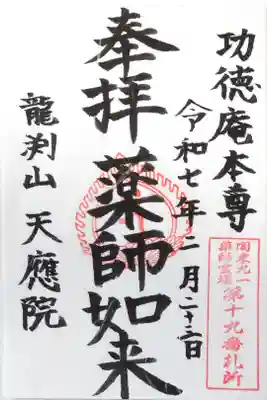 功徳庵本尊
令和七年二月二十二日
奉拝 薬師如来
龍渕山 天應院
関東九一
薬師霊場
第十九番札所